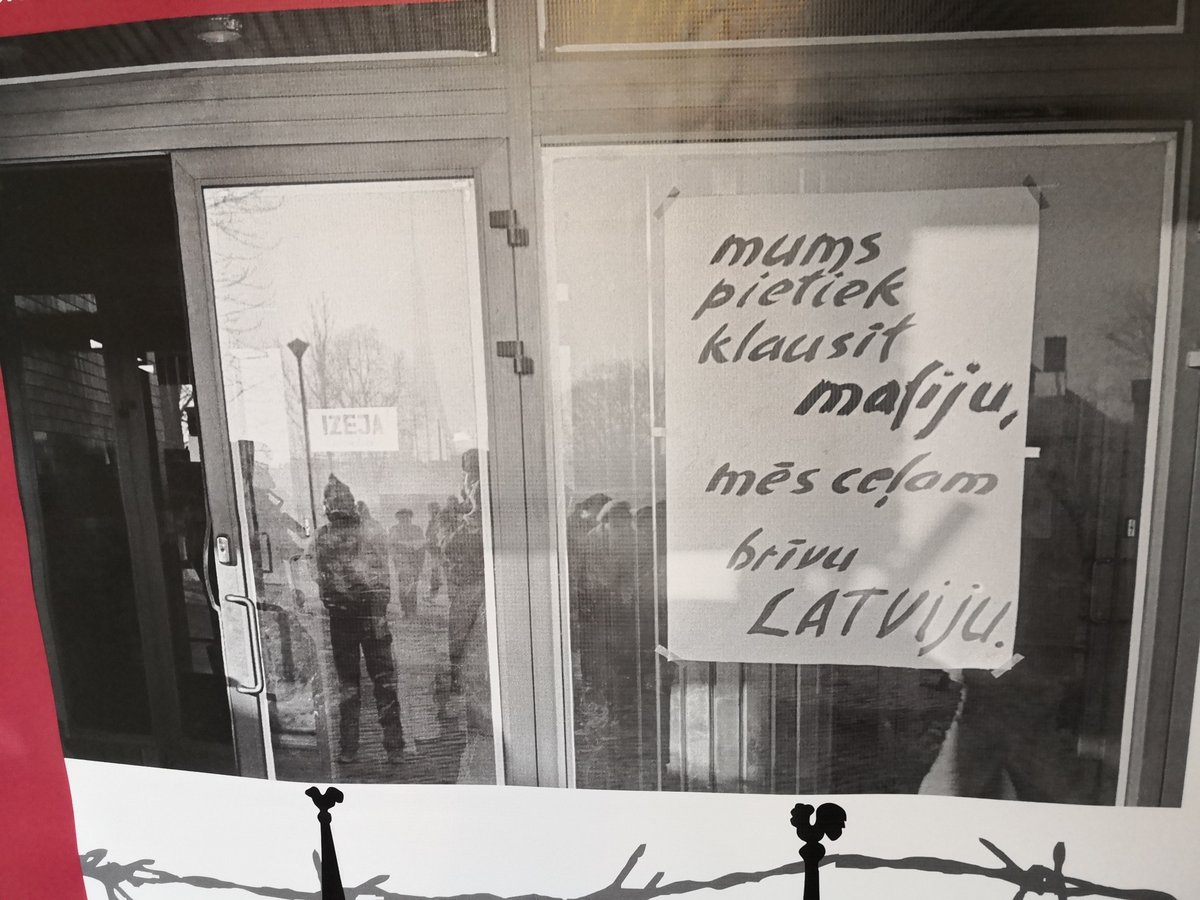 IZEJA
mums
pietiek
klausīt
mafiju,
mēs ceļam
brīvu
LATViju.